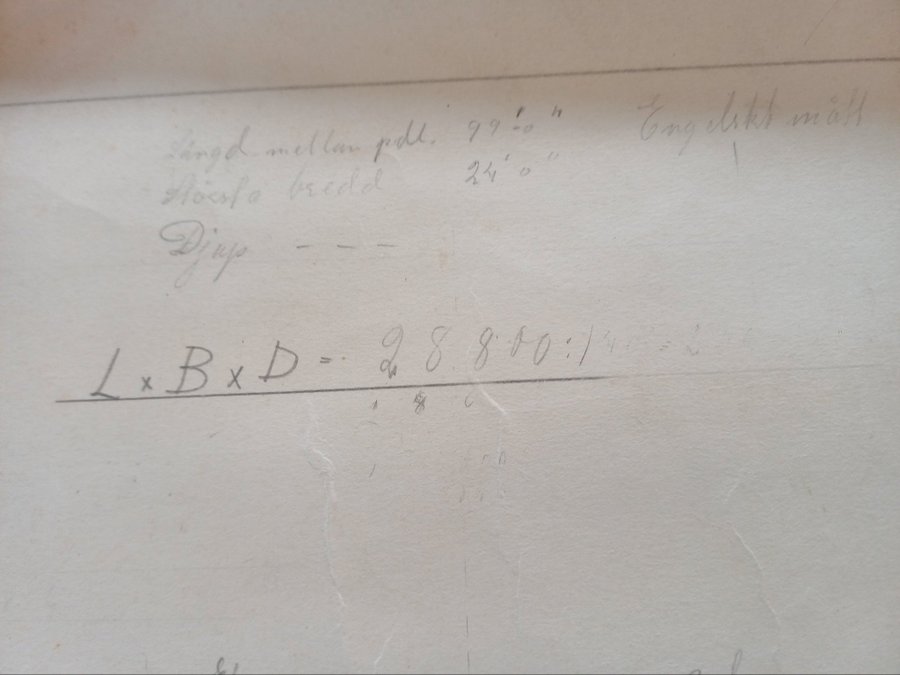 Längd mellan pdl. 99' 0" Engelskt mått
Största bredd 24' 0"
Djup - - -
L x B x D = 28800:1